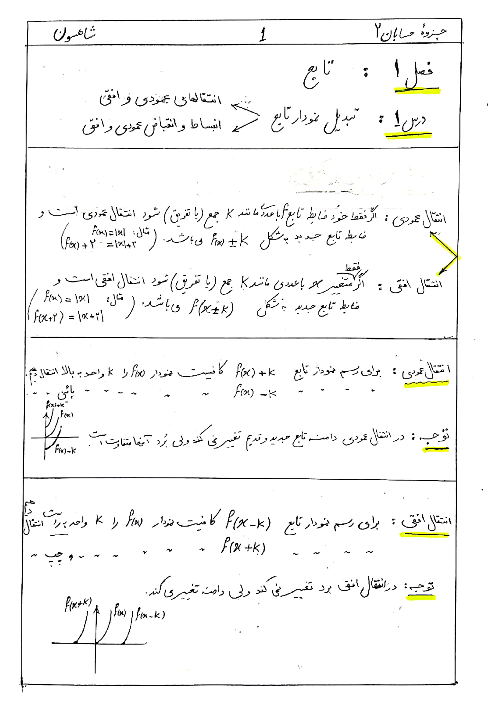 جزوهٔ حسابان ۲ 1 شاهسون
فصل 1 : تابع
درس 1 : تبدیل نمودار تابع
انتقالهای عمودی و افقی
انبساط و انقباض عمودی و افقی
انتقال عمودی : اگر فقط خود ضابطه تابع f با عددی مانند k جمع (یا تفریق) شود انتقال عمودی است و
ضابطه تابع جدید به شکل f(x) ± k می باشد. (مثال: f(x)=|x| f(x)+۲=|x|+۲)
انتقال افقی : اگر فقط متغیر x با عددی مانند k جمع (یا تفریق) شود انتقال افقی است و
ضابطه تابع جدید به شکل f(x±k) می باشد. (مثال: f(x)=|x| f(x+۲)=|x+۲|)
انتقال عمودی : برای رسم نمودار تابع f(x)+k کافیست نمودار f(x) را k واحد به بالا انتقال دهیم.
" " " " f(x)-k " " " " " " پائین " "
توجه : در انتقال عمودی دامنه تابع جدید و قدیم تغییر نمی کند ولی بُرد آنها متفاوت است.
f(x)+k
f(x)
f(x)-k
انتقال افقی : برای رسم نمودار تابع f(x-k) کافیست نمودار f(x) را k واحد به راست انتقال دهیم
" " " " f(x+k) " " " " " " و چپ "
توجه : در انتقال افقی برد تغییر نمی کند ولی دامنه تغییر می کند.
f(x+k) f(x) f(x-k)